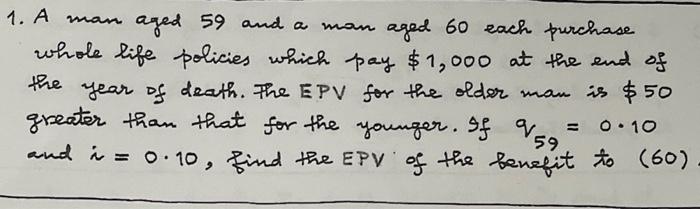 1. A man aged 59 and a man aged 60 each purchase
whole life policies which pay $1,000 at the end of
the year of death. The EPV for the older man is $50
greater than that for the younger. If q₅₉ = 0.10
and i = 0.10, find the EPV of the benefit to (60).